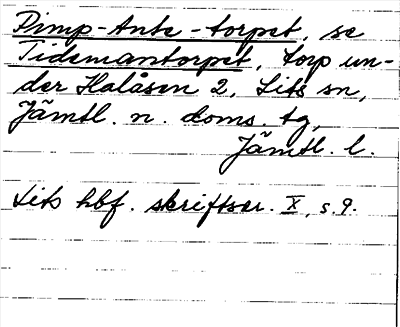 Dimp-Ante-torpet, se
Tidemantorpet, torp un-
der Halåsen 2, Lits sn,
Jämtl. n. doms. tg,
Jämtl. l.
Lits hbf. skriftser. X, s. 9.